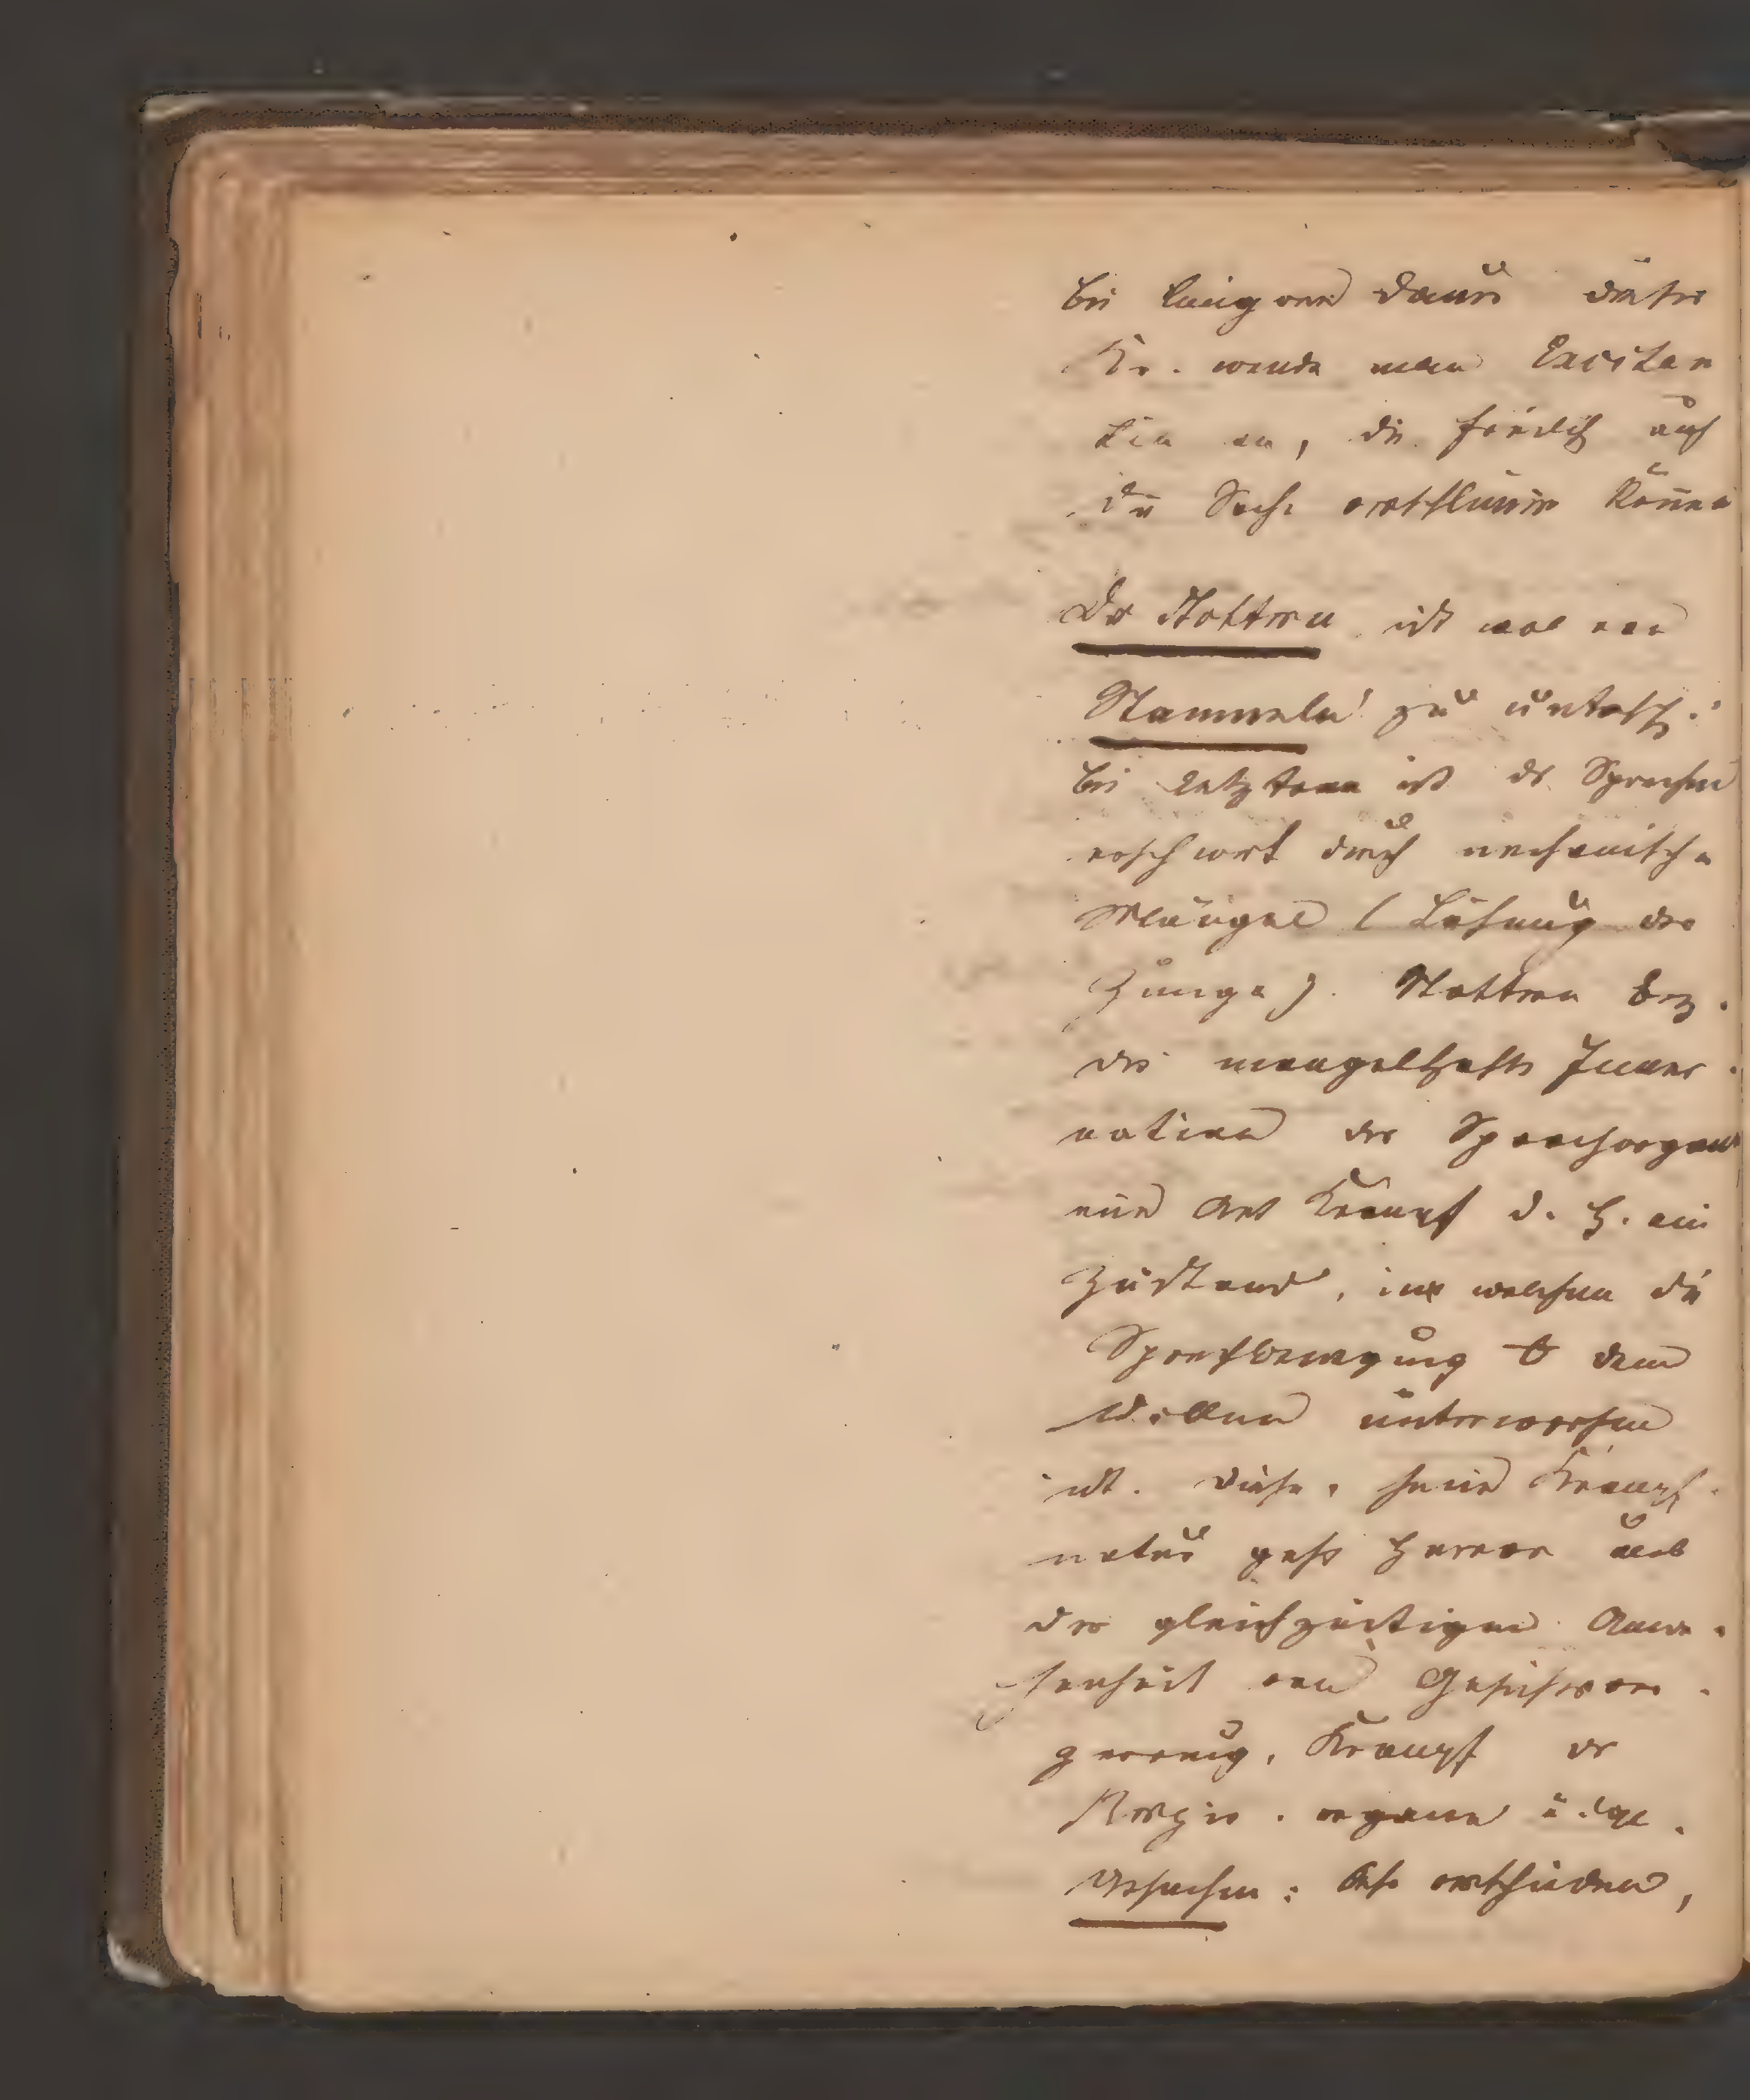 bei längerer Dauer dieser
Kr. wende man Excitan
tia an, die freilich auch
die Sache verschlimmern können
Das Stottern ist wol von
Stammeln zu untersch.:
bei letzterem ist das Sprechen
erschwert durch mechanische
Mängel (Lähmung der
Zunge). Stottern bez.
die mangelhafte Inner-
vation der Sprachorgane
eine Art Krampf d. h. ein
Zustand, in welchem die
Sprachbewegung dem
Willen unterworfen
ist. Diese, seine Krampf-
natur geht hervor aus
der gleichzeitigen Anwe-
senheit von Gesichtsver-
zerrung, Krampf der
Respir. organe u. dgl.
Ursachen: sehr verschieden,